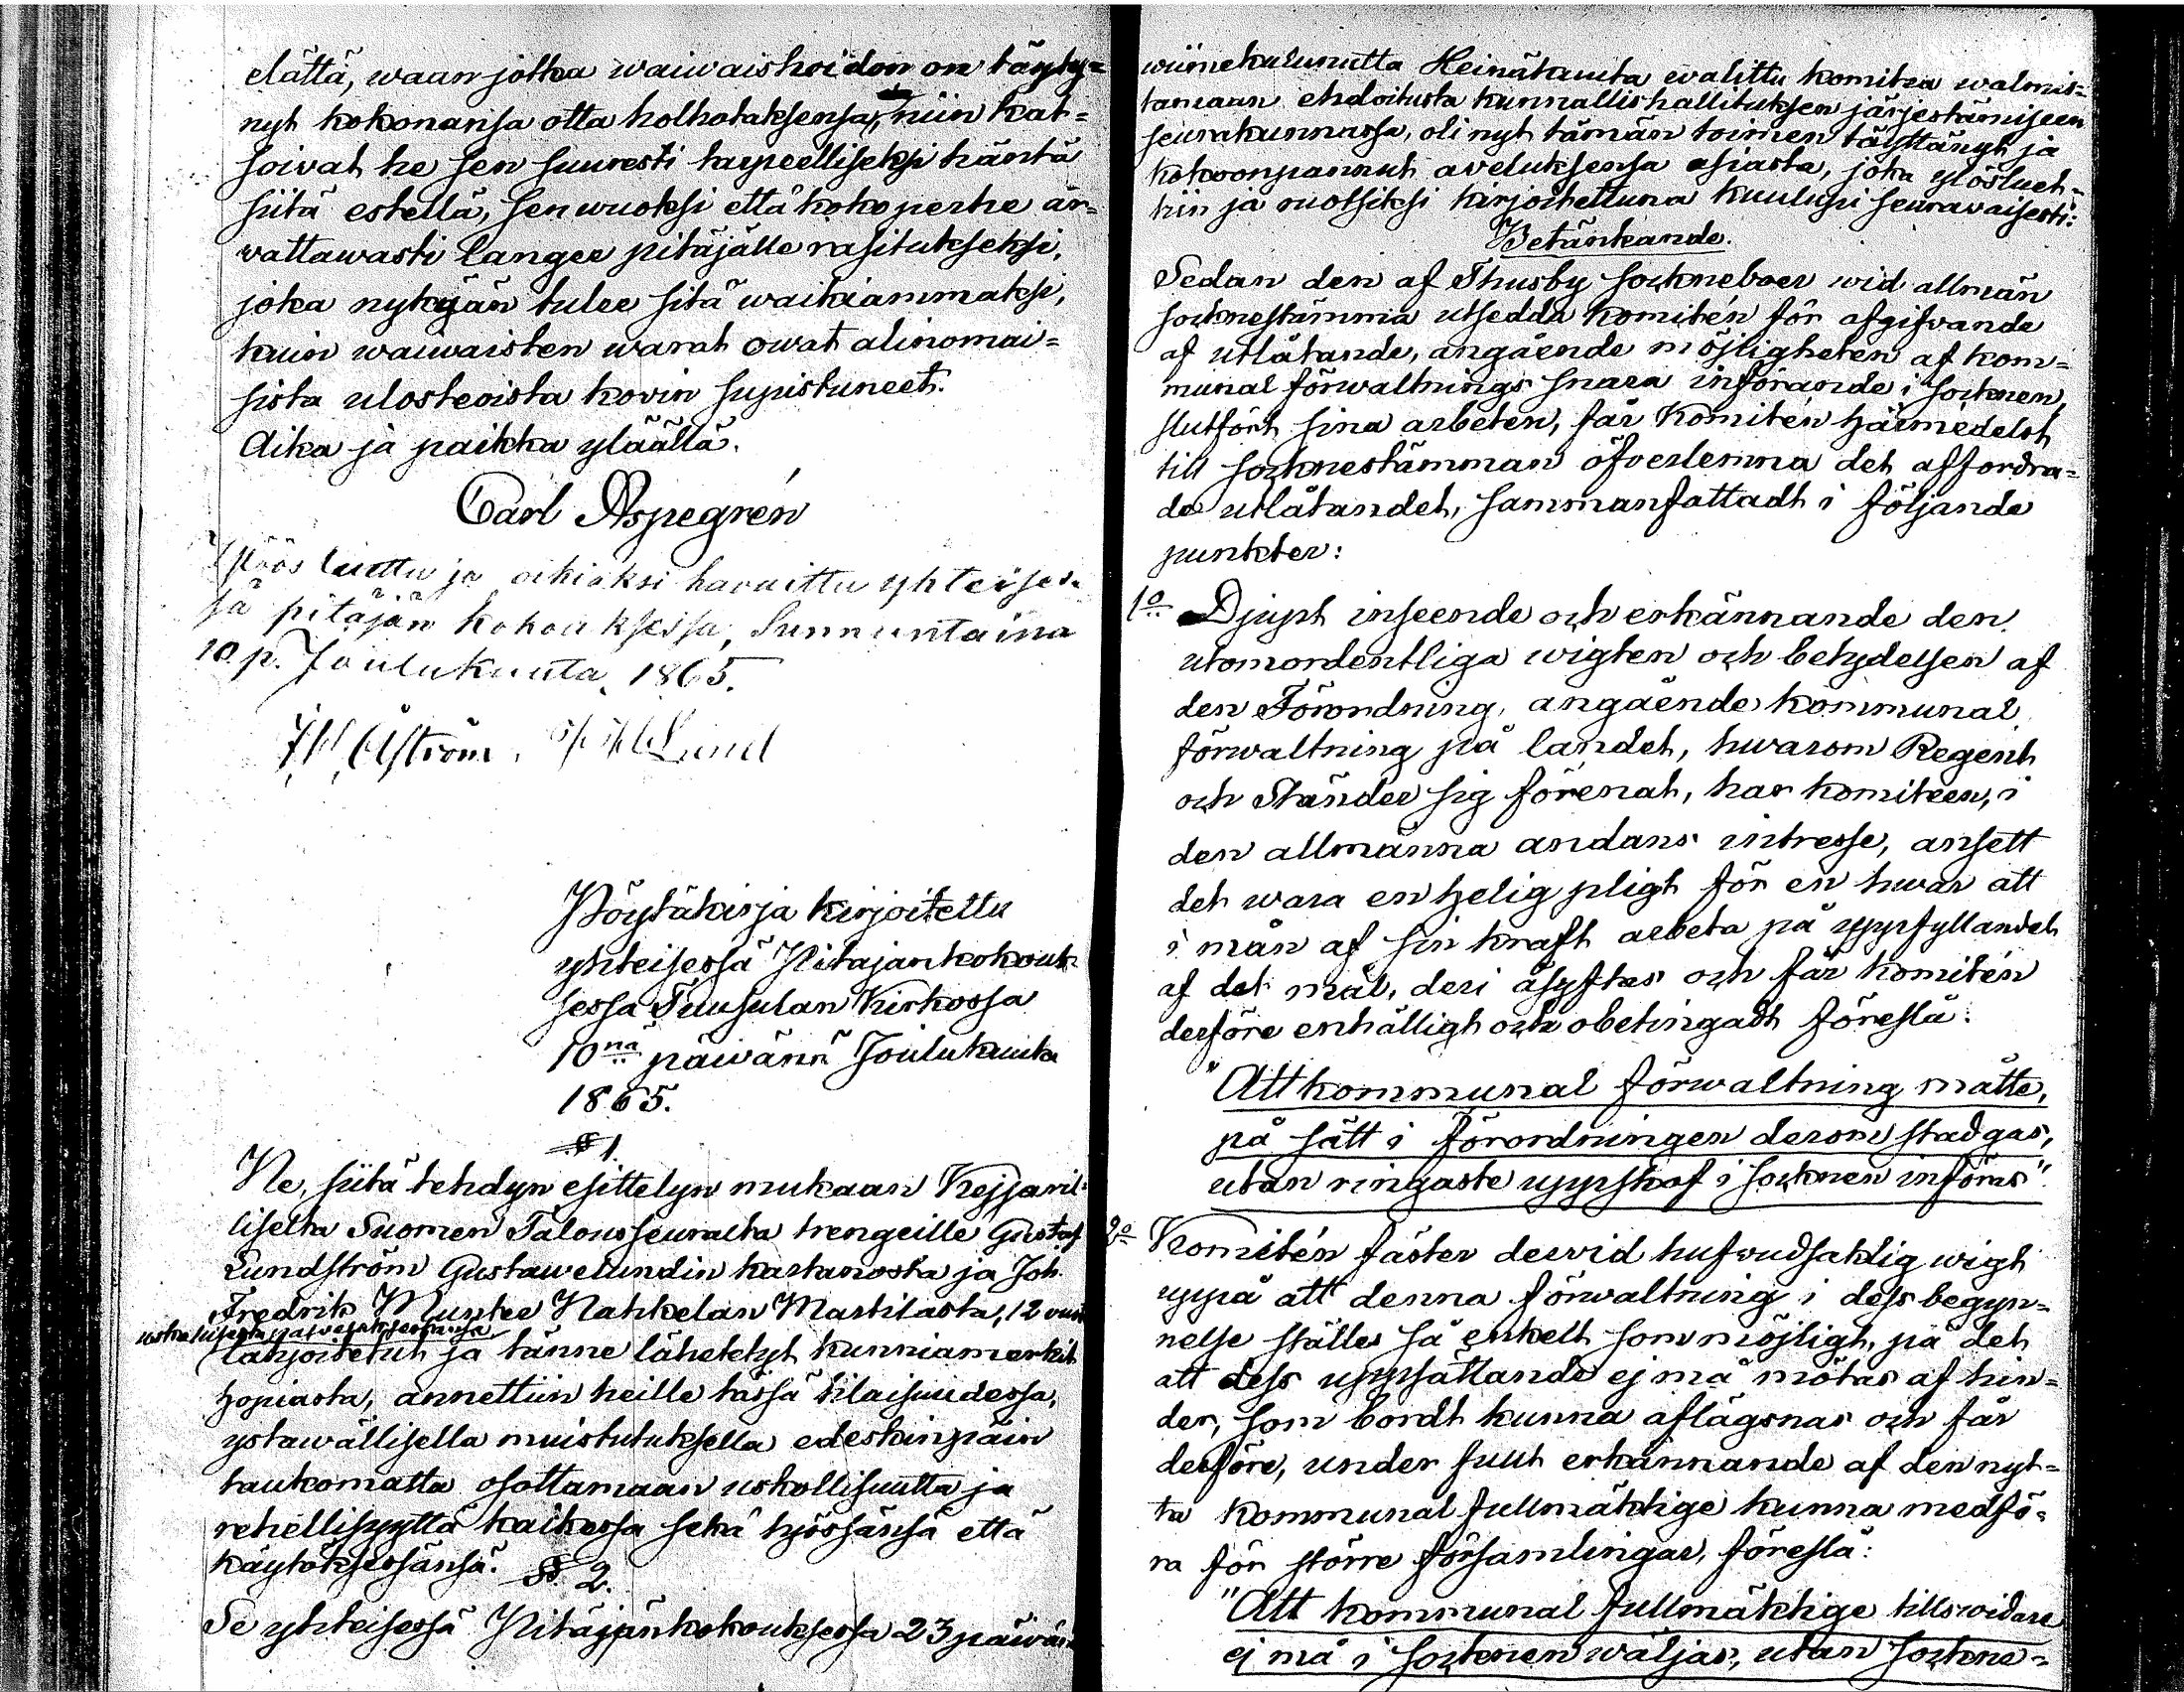 elättä, waan jotka waiwaishoidon on täyty=
nyt kokonansa otta holhotaksensa, niin kat=
soivat he sen suuresti tarpeelliseksi häntä
siitä estellä, sen wuoksi että koko perhe är=
wattawasti langee pitäjälle rasitukseksi,
joka nykyjän tulee sitä waikiammaksi,
kuin waiwaisten warat owat alinomai=
sista ulosteoista kovin supistuneet.
Aika ja paikka ylläällä.
Carl Aspegrén
Ylöös luettu ja oikiaksi havaittu yhteises=
sä pitäjän kokouksessa, Sunnuntaina
10. p. Joulukuuta, 1865.
Åström. Lund
Pöytäkirja kirjoitettu
yhteisessä Pitäjänkokouk
sessa Tuusulan Kirkossa
10nä päiwänä Joulukuuta
1865.
§ 1.
Ne, siitä tehdyn esittelyn mukaan Kejsaril=
liselta Suomen Talousseuralta trengeille Gustaf
Lundström Gustawelundin kartanosta ja Joh.
Fredrik Munter Nahkelan Martilasta, 12 vuo
uskollisesta palveluksestansa
lahjoitetut ja tänne lähetetyt kunniamerkit
hopiasta, annettiin heille tässä tilaisuudessa,
ystawällisellä muistutuksella edeskinpäin
taukomatta osottamaan uskollisuutta ja
rehellisyyttä kaikessa sekä työssänsä että
käytöksessänsä. § 2.
Se yhteisessä Pitäjänkokouksessa 23 päiwän
wiimekulunutta Heinäkuuta walittu komitea walmis=
tamaan ehdoitusta kunnallishallituksen järjestämiseen
seurakunnassa, oli nyt tämän toimen täyttänyt ja
kokoonpannut aveluksensa asiasta, joka ylösluet=
tiin ja ruotsiksi kirjoitettuna kuulusi seuravaisesti:
Betänkande.
Sedan den af Thusby sockneboer wid allmän
socknestämma utsedda Komitén för afgifvande
af utlåtande, angående möjligheten af kom=
munal förwaltnings snara införande i socknen,
slutfört sina arbeten, får Komitén härmedelst
till socknestämman öfverlemna det affordra=
de utlåtandet, sammanfattadt i följande
punkter:
1o Djupt inseende och erkännande den
utomordentliga wigten och betydelsen af
den Förordning, angående kommunal
förwaltning på landet, hwarom Regent
och Ständer sig förenat, har komiteen, i
den allmänna andans intresse, ansett
det wara en helig pligt för en hwar att
i mån af sin kraft arbeta på uppfyllandet
af det mål, deri åsyftas och får komitén
derföre enhälligt och obetingadt föreslå:
"Att kommunal förwaltning måtte,
på sätt i förordningen derom stadgas,
utan ringaste uppskof i socknen införas".
2o Komitén fäster dervid hufwudsaklig wigt
uppå att denna förwaltning i dess begyn=
nelse ställes så enkelt som möjligt, på det
att dess uppsättande ej må mötas af hin=
der, som bordt kunna aflägsnas och får
derföre, under fullt erkännande af den nyt=
ta Kommunal fullmäktige kunna medfö=
ra för större församlingar, föreslå:
"Att kommunal fullmäktige tillswidare
ej må i socknen wäljas, utan sockne=